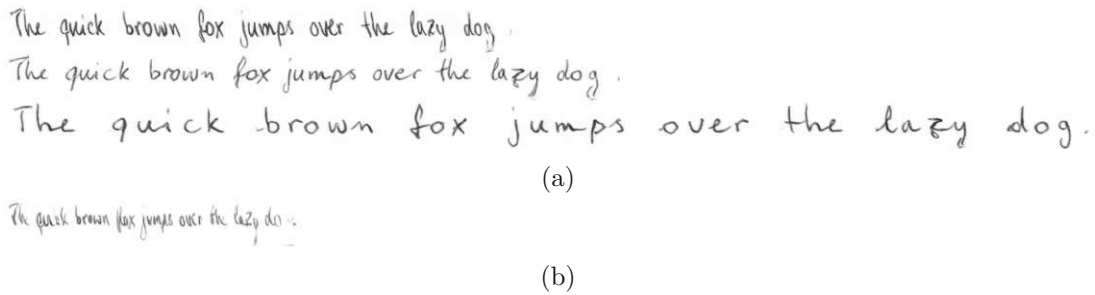 The quick brown fox jumps over the lazy dog.
The quick brown fox jumps over the lazy dog.
The quick brown fox jumps over the lazy dog.
(a)
The quick brown fox jumps over the lazy do
(b)